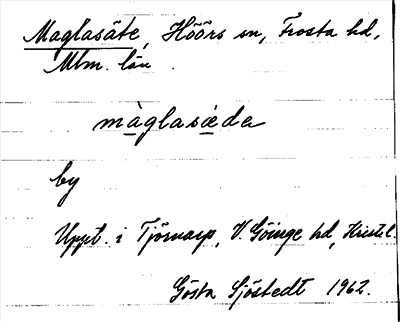 Maglasäte, Höörs sn, Frosta hd,
Mlm. län.
màglasǽda
by
Uppt. i Tjörnarp, V. Göinge hd, Kristl.
Gösta Sjöstedt 1962.